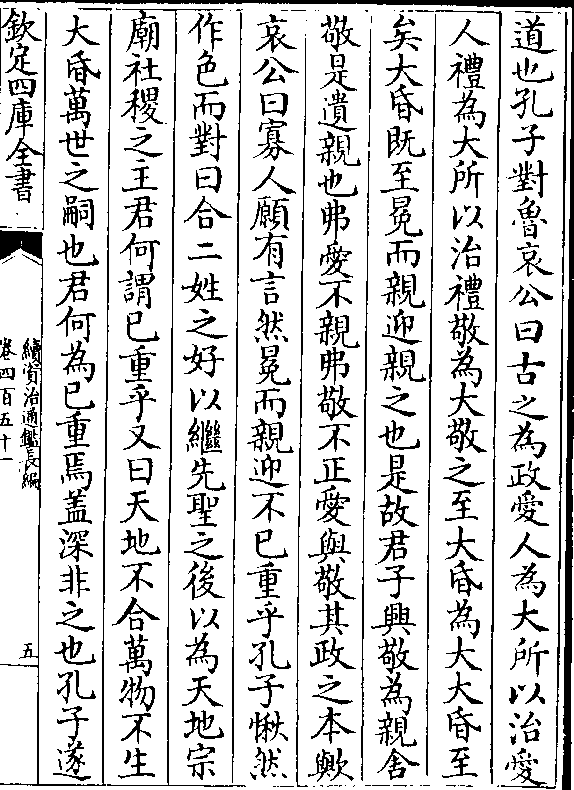 道也孔子對魯哀公曰古之為政愛人為大所以治愛
人禮為大所以治禮敬為大敬之至大昏為大大昏至
矣大昏既至冕而親迎親之也是故君子興敬為親舍
敬是遺親也弗愛不親弗敬不正愛與敬其政之本歟
哀公曰寡人願有言然冕而親迎不已重乎孔子愀然
作色而對曰合二姓之好以繼先聖之後以為天地宗
廟社稷之主君何謂已重乎又曰天地不合萬物不生
大昏萬世之嗣也君何為已重焉葢深非之也孔子遂
欽定四庫全書
續資治通鑑長編
卷四百五十一
五